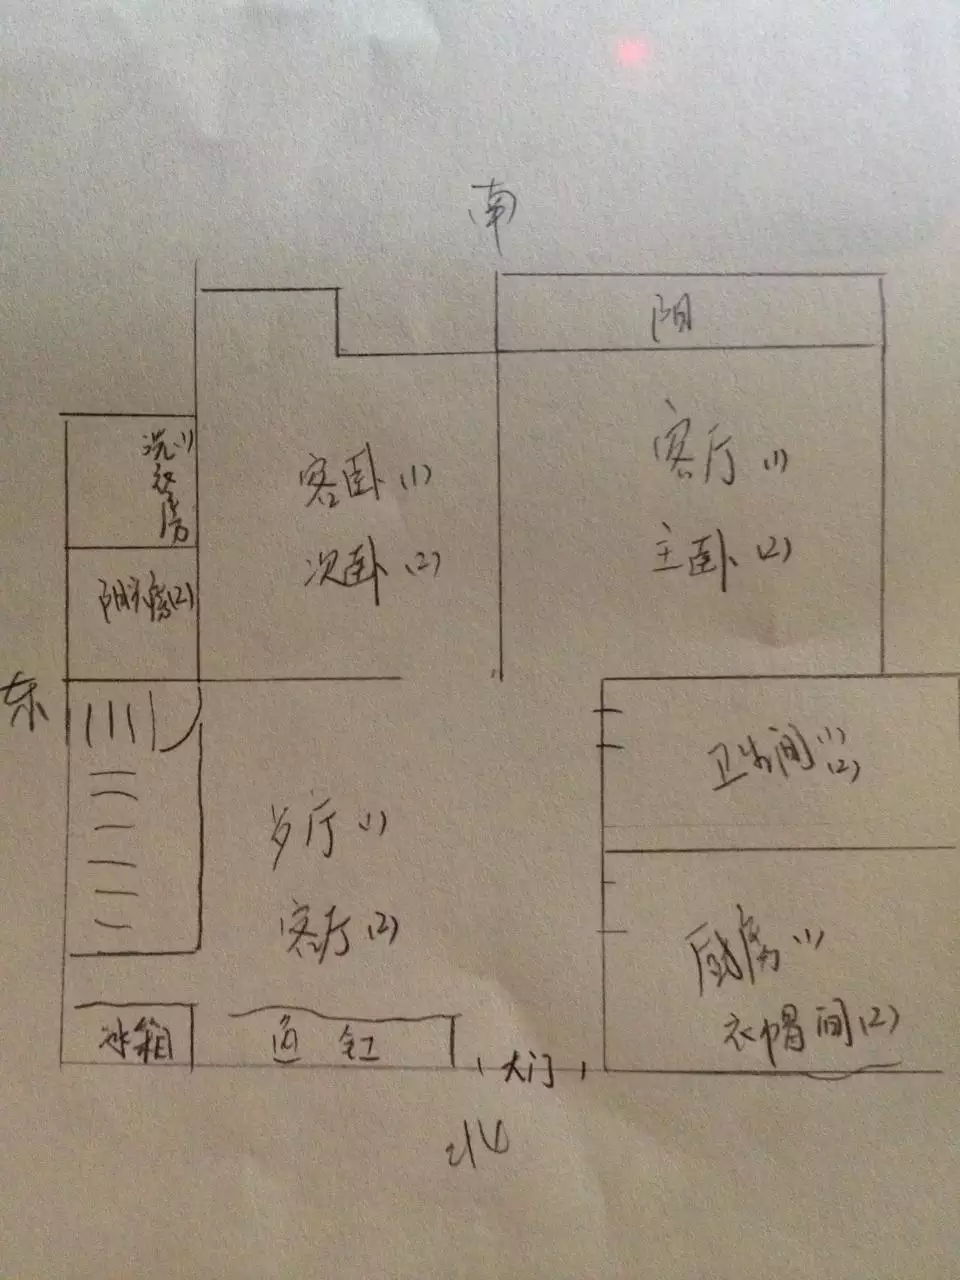 南
阳
洗衣房(1)
客卧(1)
客厅(1)
次卧(2)
主卧(2)
阳光房(2)
东
卫生间(1)
(2)
岁厅(1)
客厅(2)
厨房(1)
衣帽间(2)
冰箱
大门
北